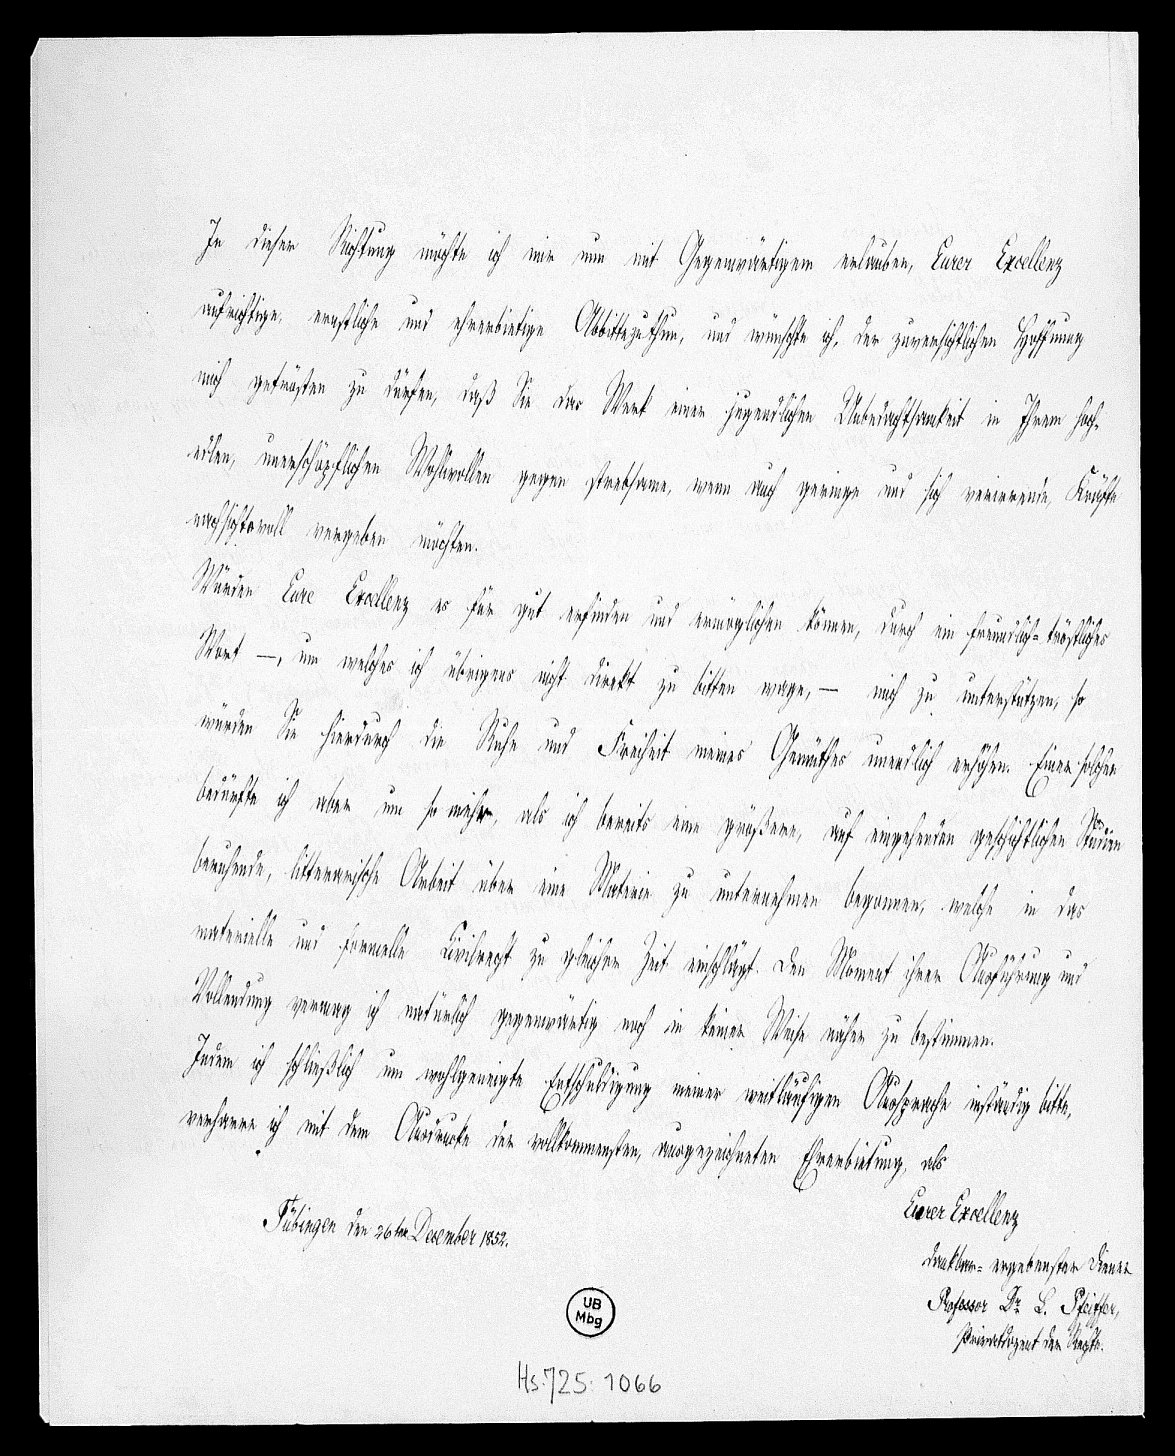 In dieser Richtung möchte ich mir nun mit Gegenwärtigem erlauben, Eurer Excellenz
aufrichtige, ernstliche und ehrerbietige Abbitte zu thun, und wünschte ich, der zuversichtlichen Hoffnung
mich getrösten zu dürfen, daß Sie das Werk einer jugendlichen Unbedachtsamkeit in Ihrem hoch-
edlen, unerschöpflichen Wohlwollen gegen strebsame, wenn auch geringe und sich verirrende, Kräfte
nachsichtsvoll vergeben möchten.
Würden Eure Excellenz es für gut erfinden und ermöglichen können, durch ein freundlich-tröstliches
Wort —, um welches ich übrigens nicht direkt zu bitten wage, — mich zu unterstützen, so
würden Sie hierdurch die Ruhe und Freiheit meines Gemüthes unendlich erhöhen. Einer solchen
bedürfte ich aber um so mehr, als ich bereits eine größere, auf eingehenden geschichtlichen Studien
beruhende, litterarische Arbeit über eine Materie zu unternehmen begonnen, welche in das
materielle und formelle Civilrecht zu gleicher Zeit einschlägt. Den Moment ihrer Ausführung und
Vollendung vermag ich natürlich gegenwärtig noch in keiner Weise näher zu bestimmen.
Indem ich schließlich um wohlgeneigte Entschuldigung meiner weitläufigen Aussprache inständig bitte,
verharre ich mit dem Ausdrucke der vollkommensten, ausgezeichneten Ehrerbietung, als
Eurer Excellenz
Tübingen den 26ten December 1852.
dankbar-ergebenster Diener
Professor Dr. L. Pfeiffer,
Privatdozent der Rechte.
UB
Mbg
Hs. 725: 1066